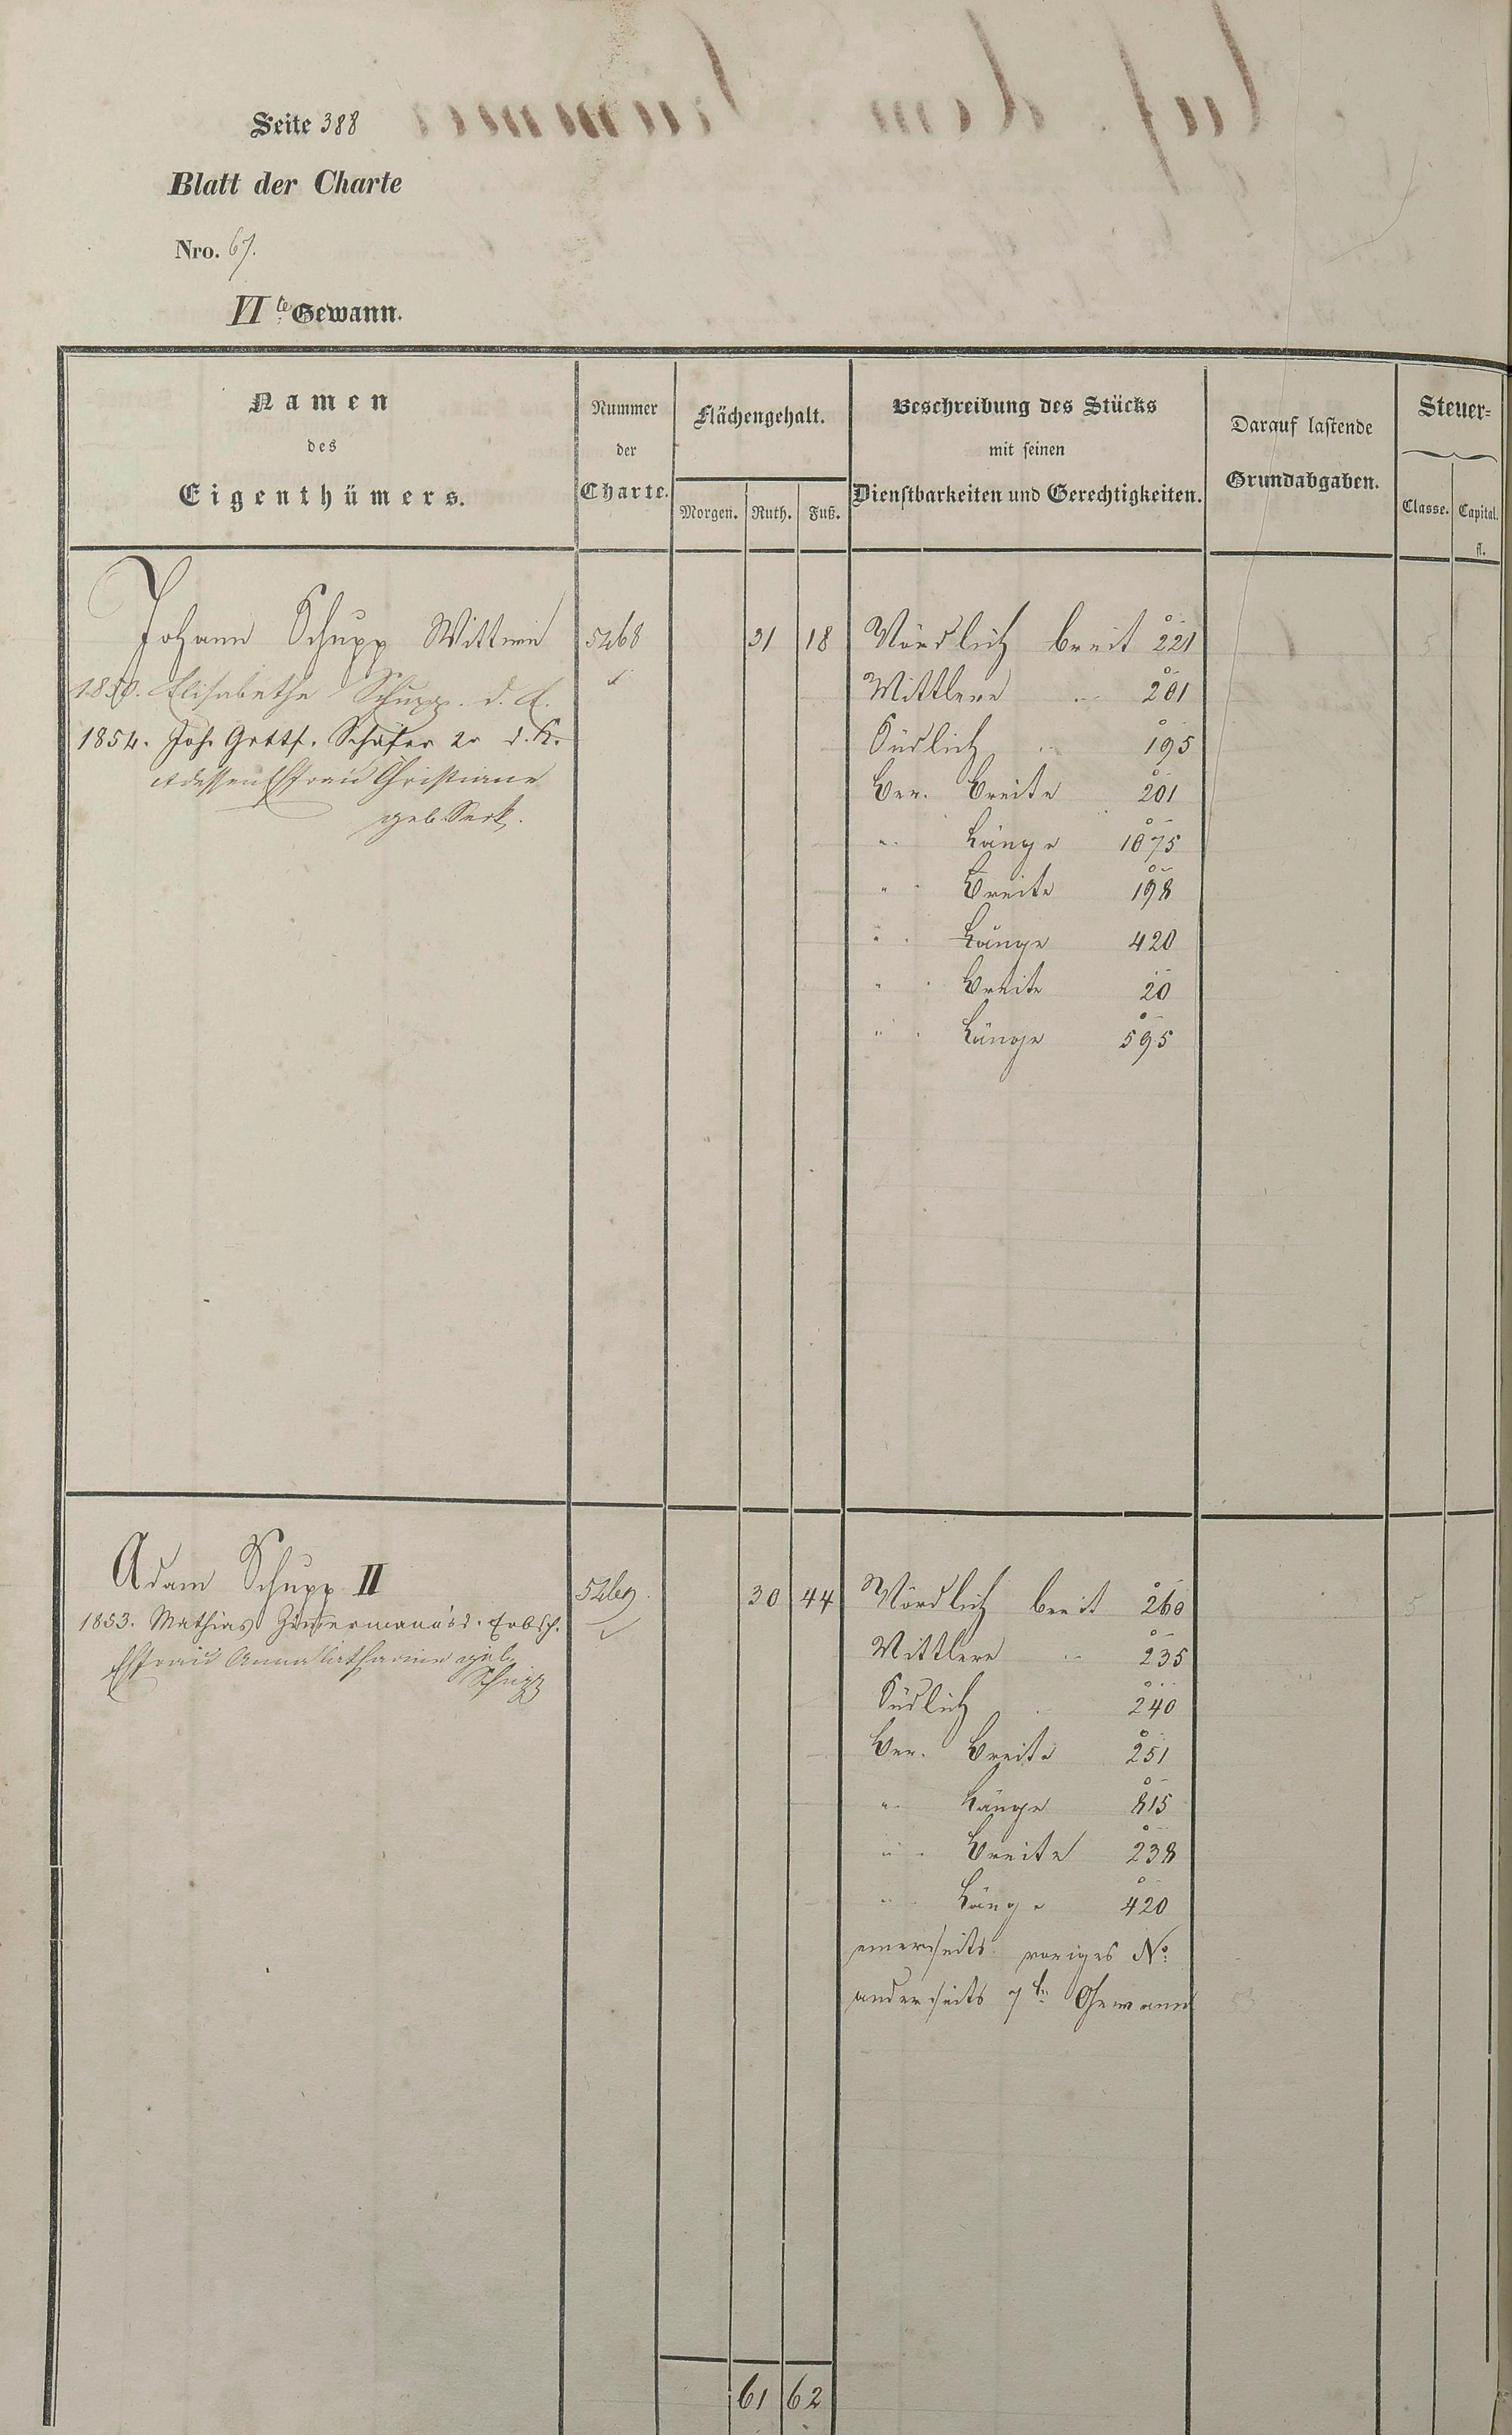 Seite 388
Blatt der Charte
Nro. 67.
VIte Gewann.
Namen
des
Eigenthümers.
Nummer
der
Charte.
Flächengehalt.
Morgen. Ruth. Fuß.
Beschreibung des Stücks
mit seinen
Dienstbarkeiten und Gerechtigkeiten.
Darauf lastende
Grundabgaben.
Steuer=
Classe. Capital.
fl.
Johann Schupp Wittwe 5268 31 18 Nördlich breit 221
1850. Elisabethe Schupp. d. E. Mittlere " 201
1854. Joh. Gottf. Schäfer 2r d. K. Südlich " 195
& dessen Ehfrau Christiane Ver. Breite 201
geb. " Länge 1075
" Breite 198
" Länge 420
" Breite 20
" Länge 595
Adam Schupp II 5269. 30 44 Nördlich breit 260 5
1853. Mathias Zimmermann's d. Erbsch. Mittlere " 235
Ehfrau Anna Catharine geb. Schupp Südlich " 240
Ver. Breite 251
" Länge 815
" Breite 238
" Länge 420
einerseits voriges No
anderseits 7te Gewann
61 62